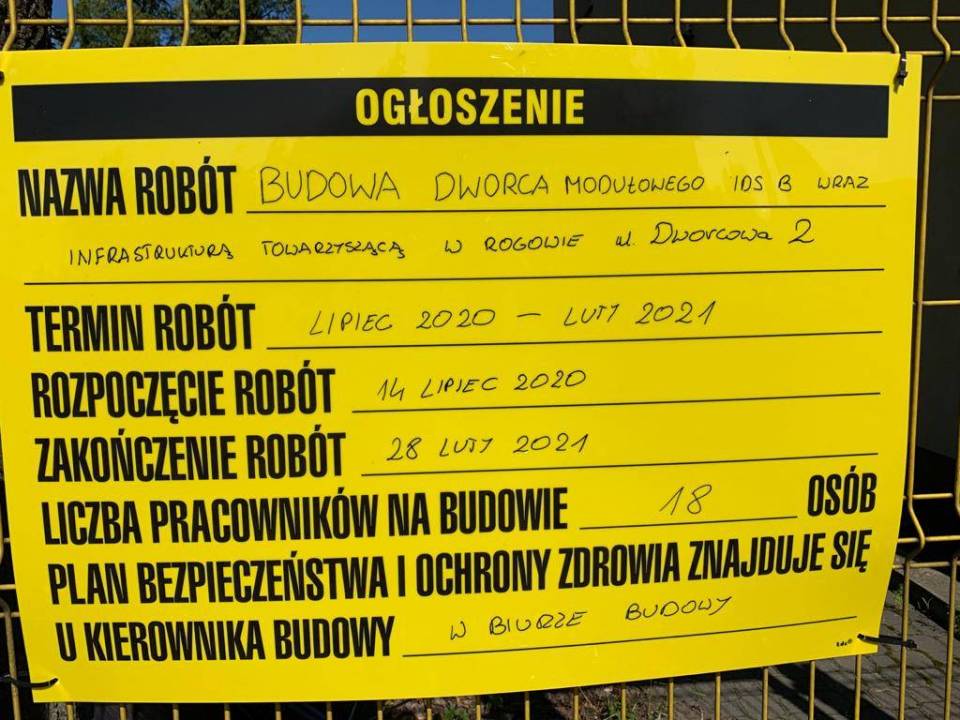 OGŁOSZENIE
NAZWA ROBÓT BUDOWA DWORCA MODUŁOWEGO IDS B WRAZ
INFRASTRUKTURĄ TOWARZYSZĄCĄ W ROGOWIE ul. Dworcowa 2
TERMIN ROBÓT LIPIEC 2020 – LUTY 2021
ROZPOCZĘCIE ROBÓT 14 LIPIEC 2020
ZAKOŃCZENIE ROBÓT 28 LUTY 2021
LICZBA PRACOWNIKÓW NA BUDOWIE 18 OSÓB
PLAN BEZPIECZEŃSTWA I OCHRONY ZDROWIA ZNAJDUJE SIĘ
U KIEROWNIKA BUDOWY W BIURZE BUDOWY